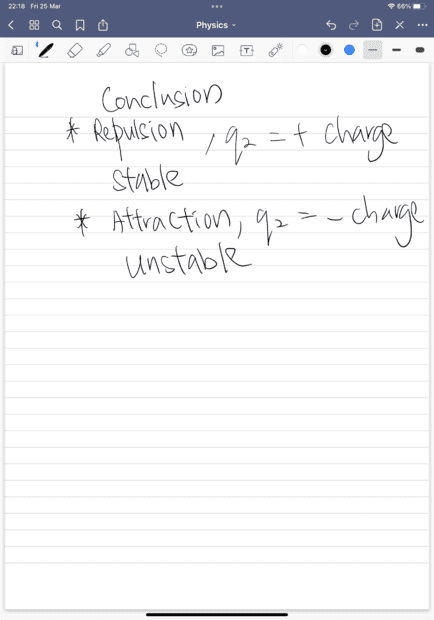 22:18 Fri 25 Mar
66%
Physics
Conclusion
* Repulsion, q₂ = + charge
stable
* Attraction, q₂ = - charge
unstable